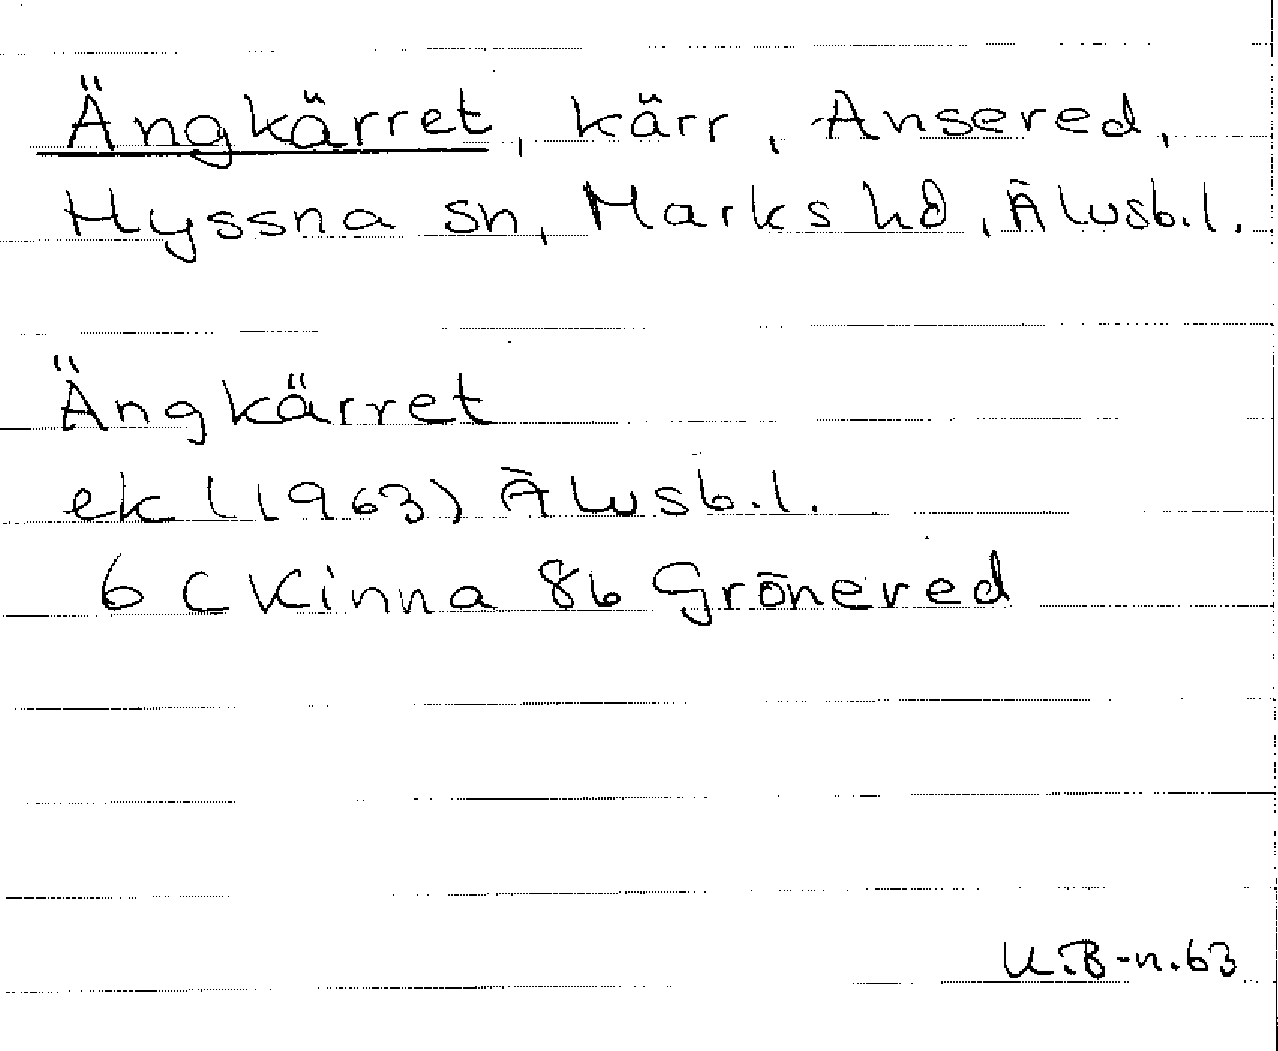 Ängkärret, kärr, Ansered,
Hyssna sn, Marks hd, Älvsb.l.
Ängkärret
ek (1963) Älvsb.l.
6 C Kinna 8b Grönered
U.B-n.63